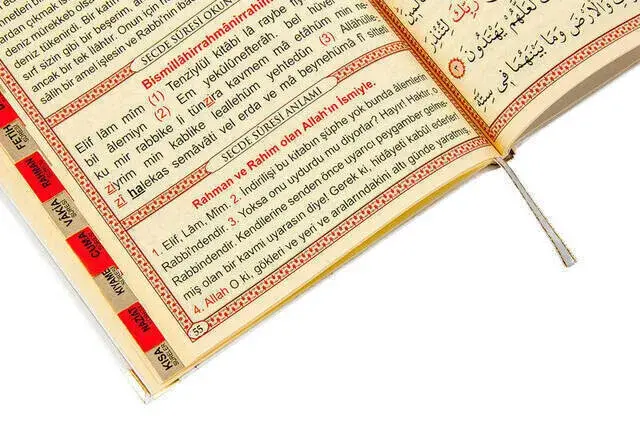 deniz tükenirdi. Bir katı
deniz mürekkep olsa
sırf sizin gibi bir beşerim, an
ancak bir tek ilâhtır. Onun için
sâlih bir amel işlesin ve Rabbi'nin iba
SECDE SÛRESİ OKUN
Bismillâhirrahmânirrahîm
Elif lâm mîm (1) Tenziylül kitâbi lâ raybe fi
bil âlemiyn (2) Em yekûlûnefterâh. bel hüvel
ku mir rabbike li tünzira kavmem mâ etâhüm min
ziyrim min kablike leallehüm yehtedûn (3) Allâhülle
zi halekas semâvâti vel erda ve mâ beynehümâ fî sitteti
SECDE SÛRESİ ANLAMI
Rahman ve Rahim olan Allah'ın İsmiyle.
1. Elif, Lâm, Mîm. 2. İndirilişi bu kitabın şüphe yok bunda âlemlerin
Rabbi'ndendir. 3. Yoksa onu uydurdu mu diyorlar? Hayır! Haktır o
Rabbindendir. Kendilerine senden önce uyarıcı peygamber gelme-
miş olan bir kavmi uyarasın diye! Gerek ki, hidâyeti kabûl ederler!
4. Allah O ki, gökleri ve yeri ve aralarındakini altı günde yaratmış,
55
FETİH
RAHMAN
VAKIA
CUMA
KIYAME
NAZİAT
KISA
SURELER
رَبِّكَ لِتُنْذِرَ
لَعَلَّهُمْ يَهْتَدُونَ
وَالْأَرْضَ وَمَا بَيْنَهُمَا فِي سِتَّةِ